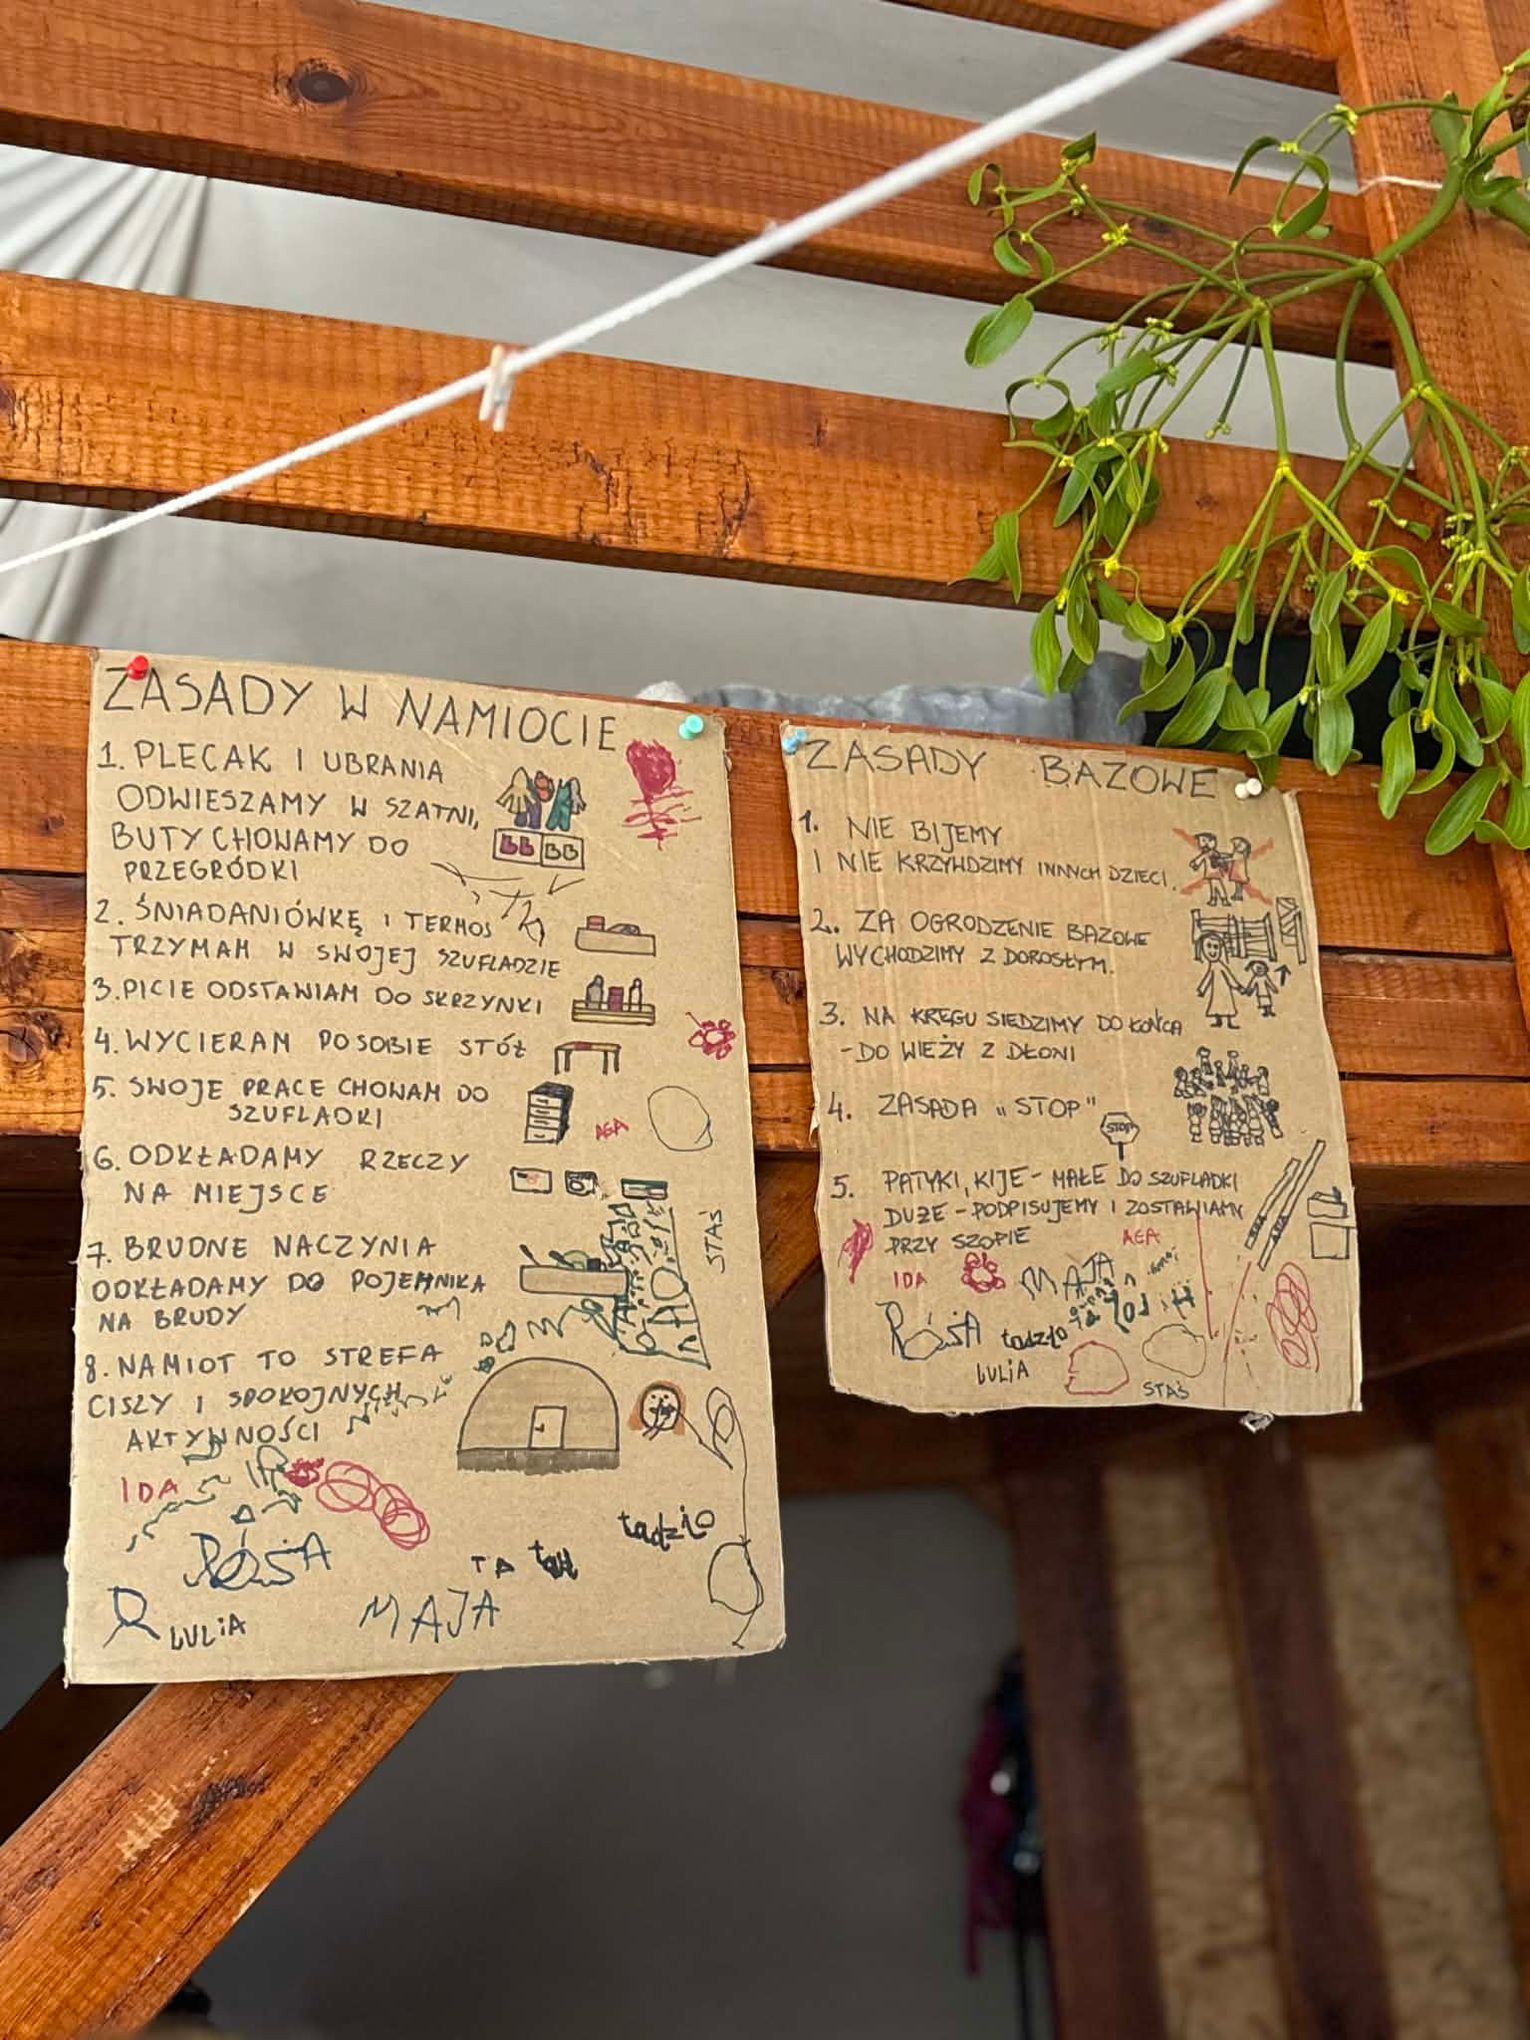 ZASADY W NAMIOCIE
1. PLECAK I UBRANIA
ODWIESZAMY W SZATNI,
BUTY CHOWAMY DO
PRZEGRÓDKI
2. ŚNIADANIÓWKĘ I TERMOS
TRZYMAM W SWOJEJ SZUFLADZIE
3. PICIE ODSTAWIAM DO SKRZYNKI
4. WYCIERAM PO SOBIE STÓŁ
5. SWOJE PRACE CHOWAM DO
SZUFLADKI
AGA
6. ODKŁADAMY RZECZY
NA MIEJSCE
STAŚ
7. BRUDNE NACZYNIA
ODKŁADAMY DO POJEMNIKA
NA BRUDY
8. NAMIOT TO STREFA
CISZY I SPOKOJNYCH
AKTYWNOŚCI
IDA
tadzio
RÓŻA
TA
LULiA
MAJA
ZASADY BAZOWE
1. NIE BIJEMY
I NIE KRZYWDZIMY INNYCH DZIECI.
2. ZA OGRODZENIE BAZOWE
WYCHODZIMY Z DOROSŁYM.
3. NA KRĘGU SIEDZIMY DO KOŃCA
- DO WIEŻY Z DŁONI
4. ZASADA "STOP"
STOP
5. PATYKI, KIJE - MAŁE DO SZUFLADKI
DUŻE - PODPISUJEMY I ZOSTAWIAMY
PRZY SZOPIE
AGA
IDA
MAJA
RÓŻA
tadzio
LULiA
STAŚ